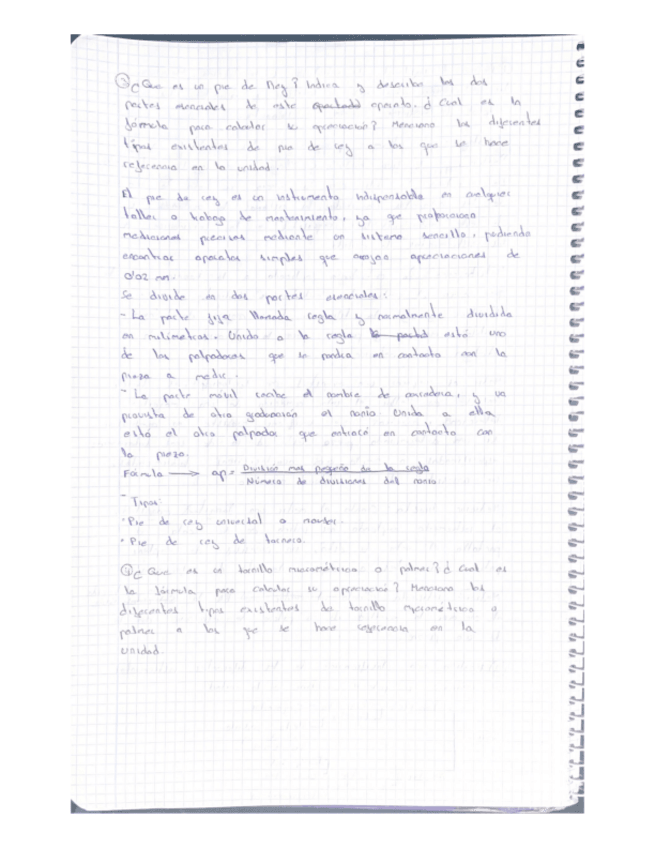 ③ ¿Que es un pie de Rey? Indica y describe las dos
partes esenciales de este aparato. ¿Cual es la
fórmula para calcular su apreciación? Menciona los diferentes
tipos existentes de pie de rey a los que se hace
referencia en la unidad.
El pie de rey es un instrumento indispensable en cualquier
taller o trabajo de mantenimiento, ya que proporciona
mediciones precisas mediante un sistema sencillo, pudiendo
encontrar aparatos simples que arrojan apreciaciones de
0'02 mm.
Se divide en dos partes esenciales:
- La parte fija llamada regla y normalmente dividida
en milimetros. Unida a la regla está uno
de los palpadores que se pondra en contacto con la
pieza a medir.
- La parte móvil recibe el nombre de corredera, y va
provista de otra graduación el nonio Unida a ella
está el otro palpador que entrará en contacto con
la pieza.
Fórmula → ap = División mas pequeña de la regla
Número de divisiones del nonio
- Tipos:
· Pie de rey universal o nauser.
· Pie de rey de tornero.
④ ¿Que es un tornillo micrométrico o palmer? ¿Cual es
la fórmula para calcular su apreciación? Menciona los
diferentes tipos existentes de tornillo micrométrico o
palmer a los que se hace referencia en la
unidad.